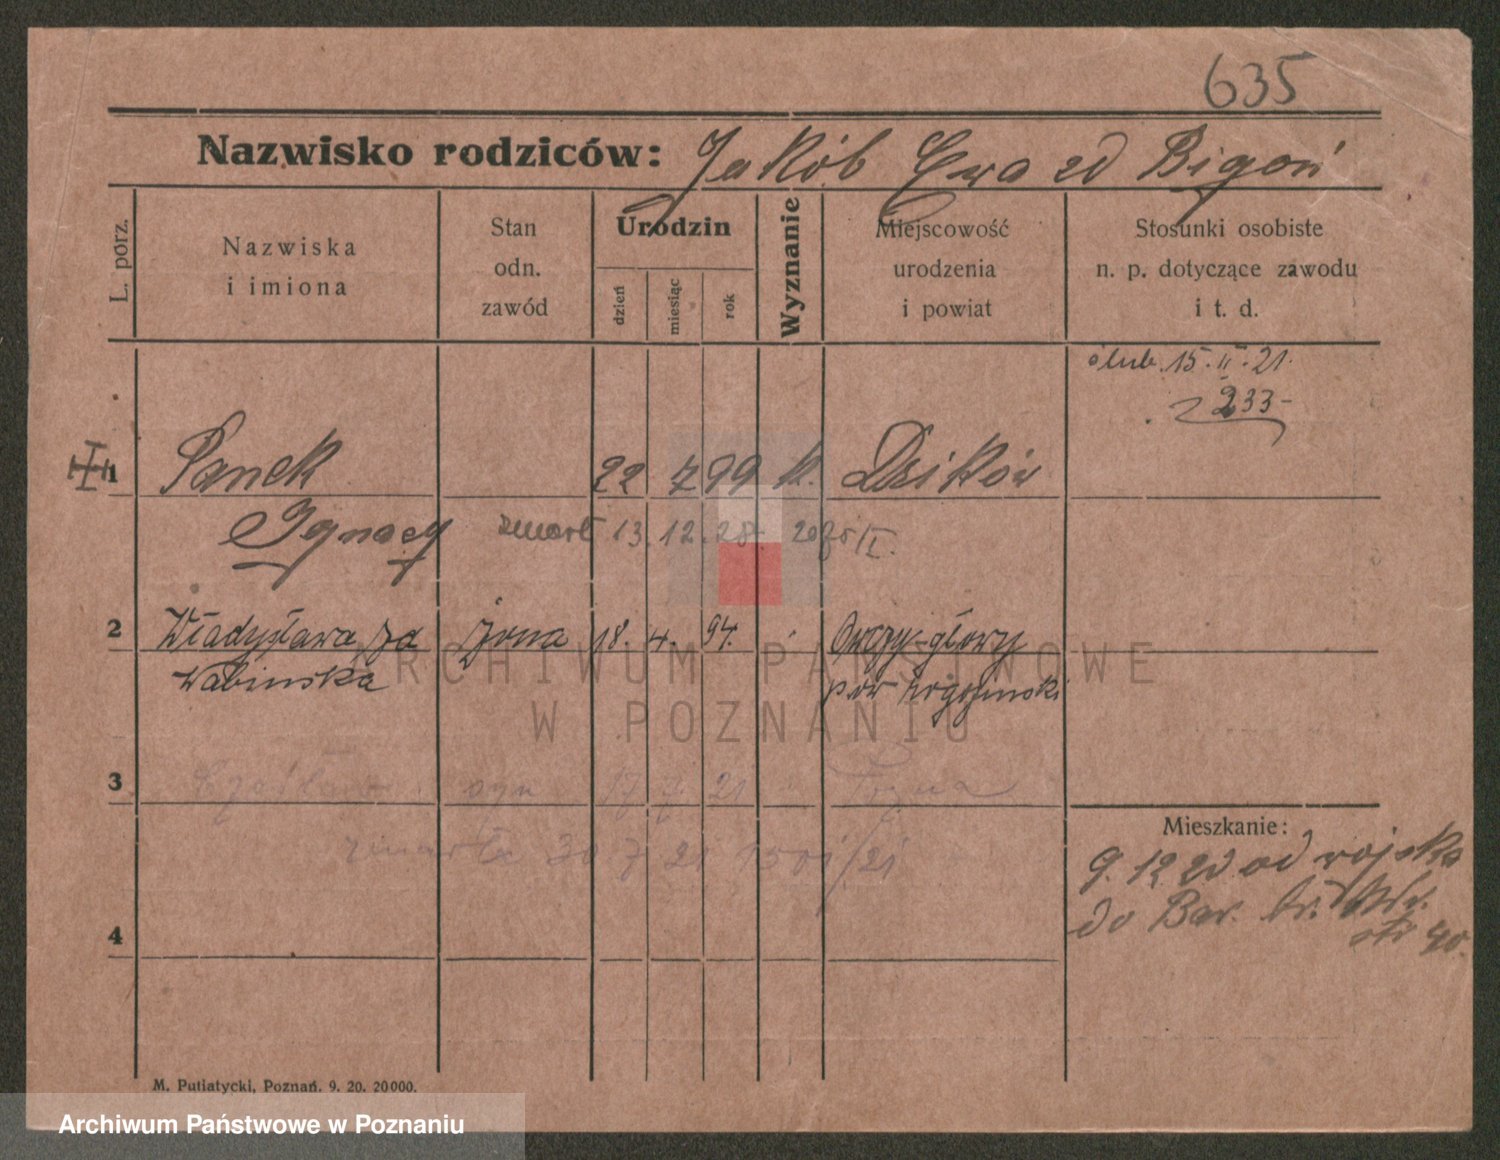 635
Nazwisko rodziców: Jakób Ewa zd Bigoń
L. porz.
Nazwiska
i imiona
Stan
odn.
zawód
Urodzin
dzień
miesiąc
rok
Wyznanie
Miejscowość
urodzenia
i powiat
Stosunki osobiste
n. p. dotyczące zawodu
i t. d.
ślub. 15. II. 21.
233-
1 Panek 22 7 99 k. Dzików
Ignacy zmarł 13.12.28
2 Władysława zd żona 18. 4. 94.
Wabinska pow
ARCHIWUM PAŃSTWOWE
W POZNANIU
3 Czesław syn 17 7 21 Pozna
zmarł 30 7 21 1501/21
Mieszkanie:
9. 12 20 od wojska
do Bar. 
4
M. Putiatycki, Poznań. 9. 20. 20000.
Archiwum Państwowe w Poznaniu